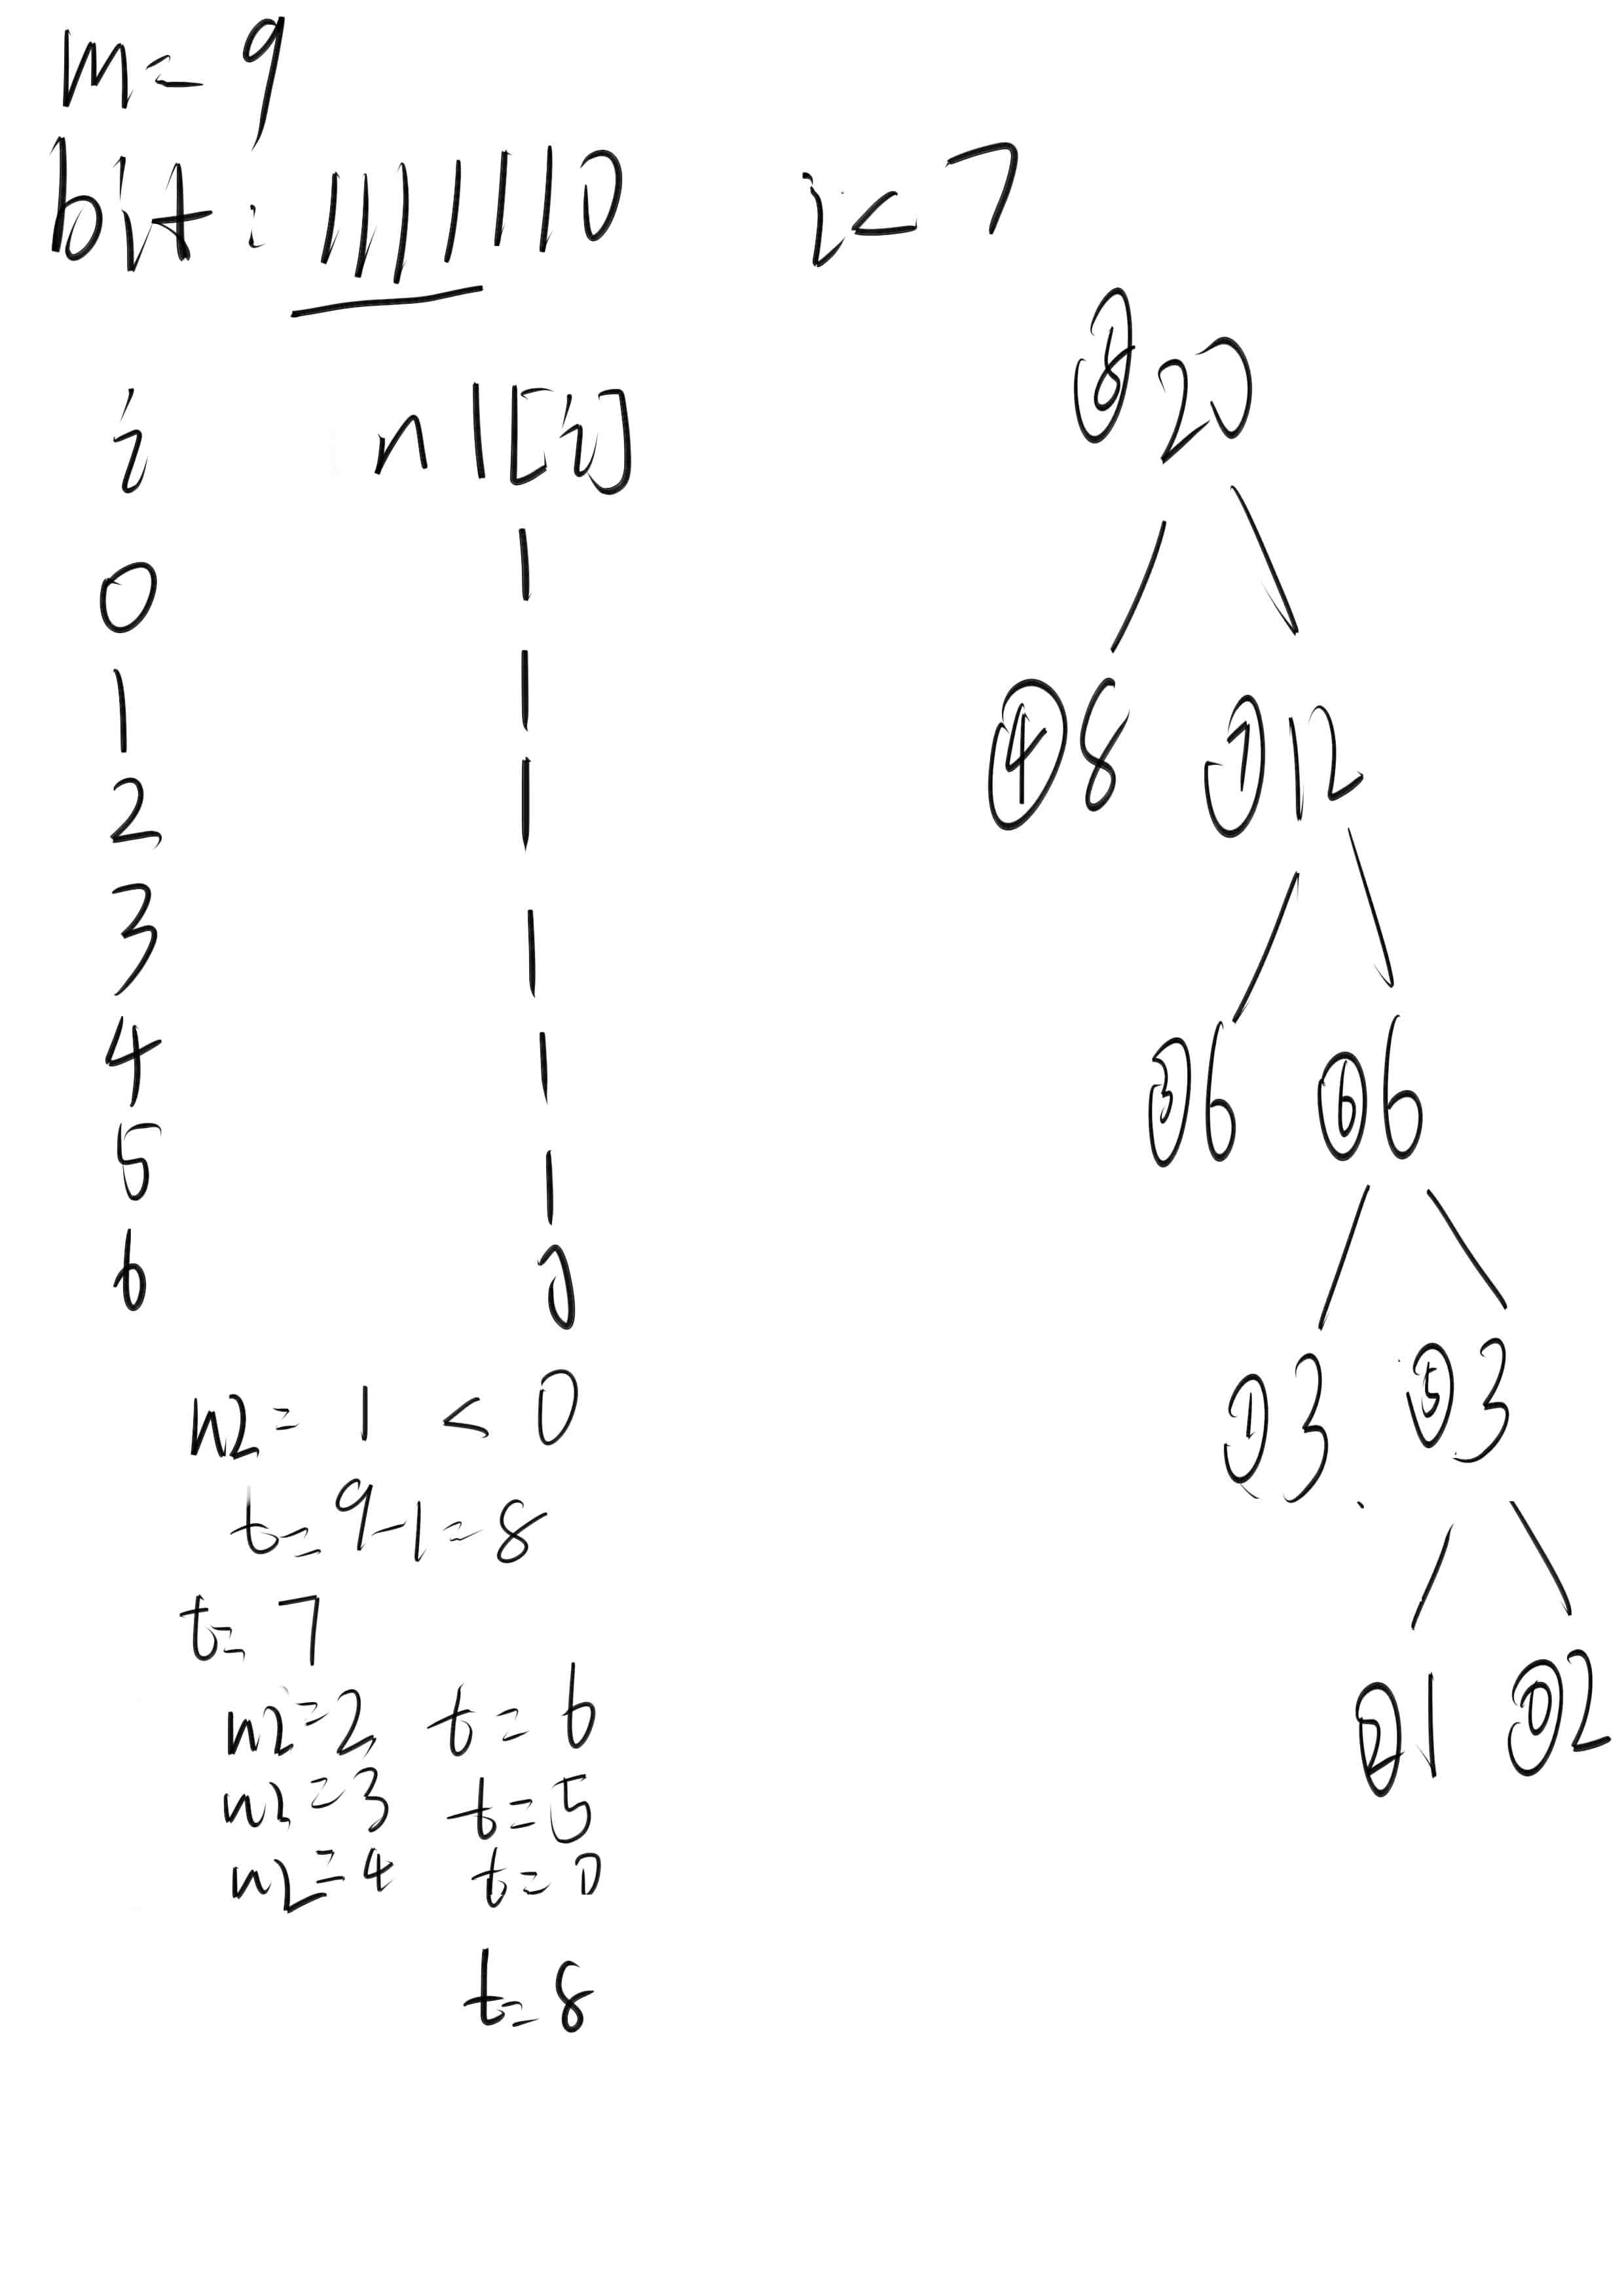 m= 9
bit: 1111110
i= 7
i n1[i]
0 1
1 1
2 1
3 1
4 1
5 1
6 0
n2= 1 < 0
t= 9-1=8
t= 7
n2=2 t= 6
n2=3 t=5
n2=4 t=0
t= 8
⑧ 20
④ 8 ⑦ 12
③ 6 ⑥ 6
① 3 ⑤ 3
② 1 ⓪ 2